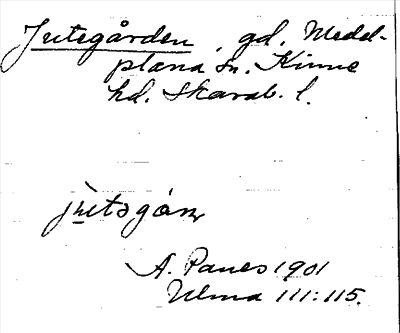 Jutegården, gd, Medel-
plana sn. Kinne
hd. Skarab. l.
jutsgán
A. Panes 1901
Ulma 111:115.